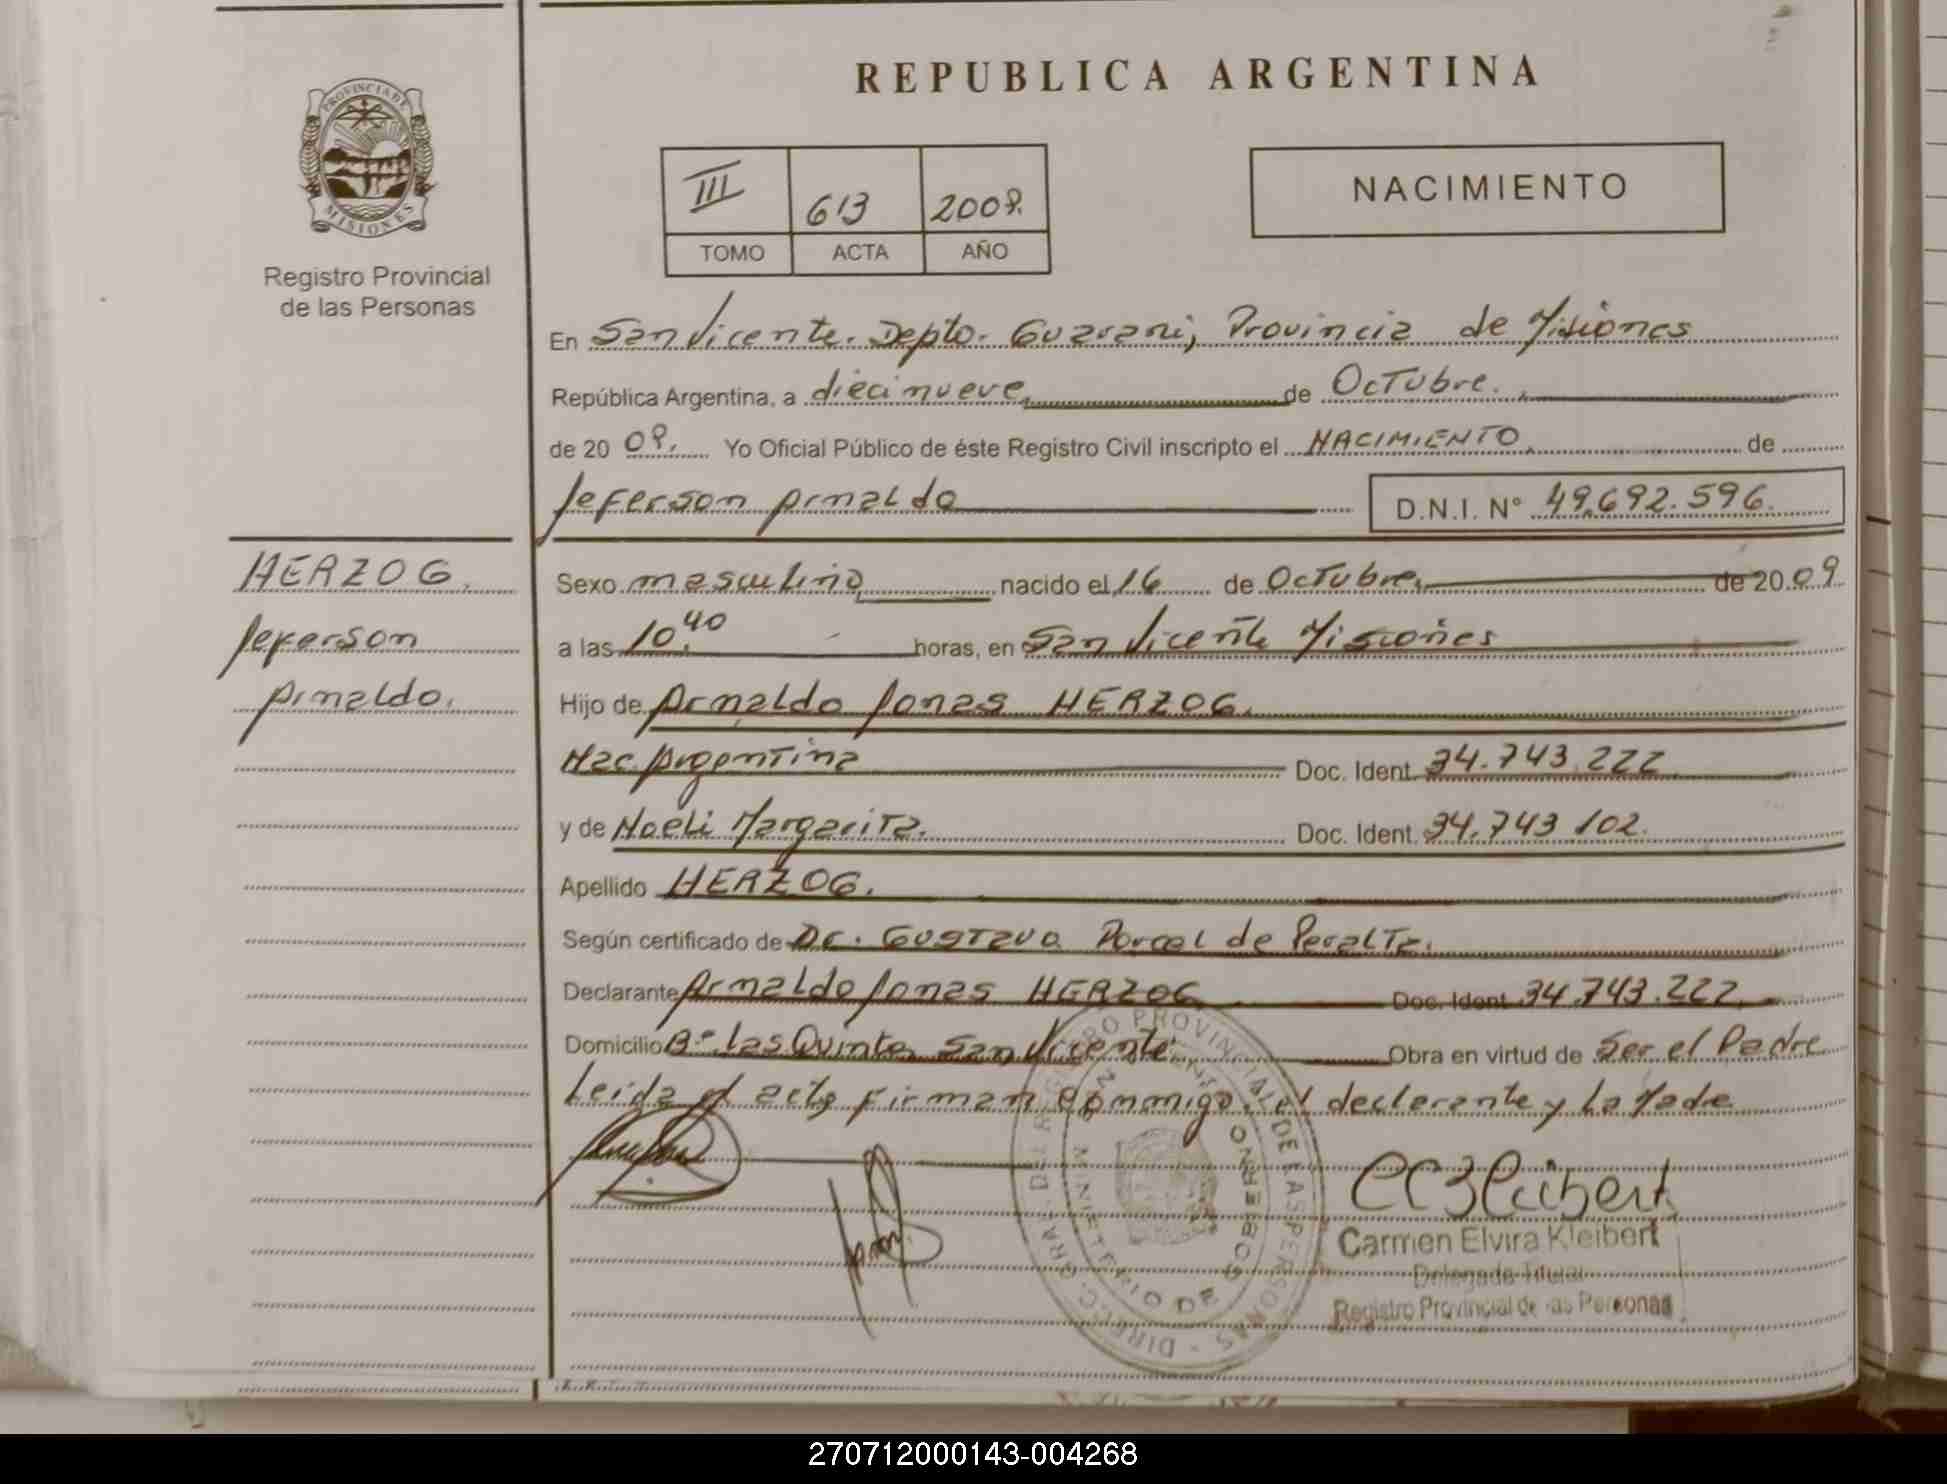 REPUBLICA ARGENTINA
PROVINCIA DE
MISIONES
Registro Provincial
de las Personas
III 613 2009.
TOMO ACTA AÑO
NACIMIENTO
En San Vicente. Depto. Guarani, Provincia de Misiones
República Argentina, a diecinueve, de Octubre.
de 2009. Yo Oficial Público de éste Registro Civil inscripto el NACIMIENTO. de
Jeferson Arnaldo D.N.I. N° 49.692.596.
HERZOG.
Jeferson
Arnaldo.
Sexo masculino nacido el 16 de Octubre. de 2009
a las 10,40 horas, en San Vicente Misiones
Hijo de Arnaldo Jonas HERZOG.
Nac. Argentina Doc. Ident. 34.743.222
y de Noeli Margarita. Doc. Ident. 34.743 102.
Apellido HERZOG.
Según certificado de Dr. Gustavo Porcel de Peralta.
Declarante Arnaldo Jonas HERZOG Doc. Ident. 34.743.222
Domicilio B° las Quinta San Vicente. Obra en virtud de Ser el Padre
Leida el acta firman conmigo. el declarante y La Madre
Carmen Elvira Kleibert
Delegada Titular
Registro Provincial de las Personas
DIREC. GRAL. DEL REGISTRO PROVINCIAL DE LAS PERSONAS
MINISTERIO DE GOBIERNO
270712000143-004268